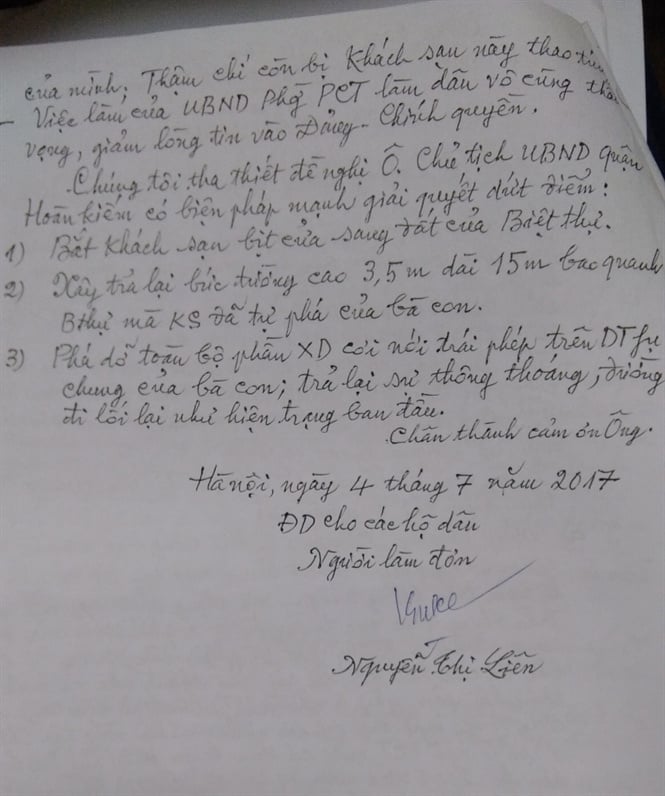 của mình. Thậm chí còn bị Khách sạn này thao
- Việc làm của UBND Phg PCT làm dân vô cùng
vọng, giảm lòng tin vào Đảng - Chính quyền.
Chúng tôi tha thiết đề nghị Ô. Chủ tịch UBND quận
Hoàn kiếm có biện pháp mạnh giải quyết dứt điểm:
1) Bắt Khách sạn bịt cửa sang đất của Biệt thự.
2) Xây trả lại bức tường cao 3,5m dài 15m bao quanh
Bthự mà KS đã tự phá của bà con.
3) Phá dỡ toàn bộ phần XD cơi nới trái phép trên DT
chung của bà con; trả lại sự thông thoáng, đường
đi lối lại như hiện trạng ban đầu.
Chân thành cảm ơn Ông.
Hà nội, ngày 4 tháng 7 năm 2017
ĐD cho các hộ dân
Người làm đơn
Nguyễn Thị Liên